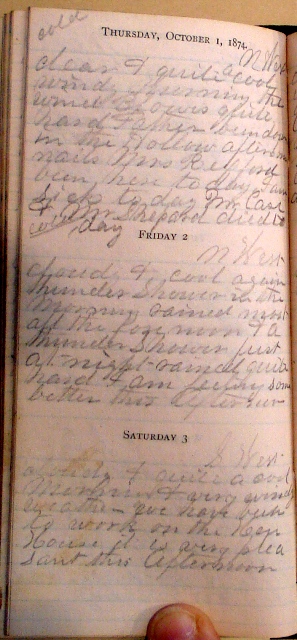 cold
THURSDAY, OCTOBER 1, 1874.
N West
clear & quite cool
windy this morning the
wind blows quite
hard Father been down
in the hollow afternoon
nails Mrs Redford
been here today I am
sick to day Mr Case
& Wm Shepard died to
day
FRIDAY 2
N West
cloudy & cool again
thunder Shower in the
Morning rained most
all the fore noon & a
thunder Shower just
at night rained quite
hard I am feeling some
better this afternoon
SATURDAY 3
S West
cloudy & quite cool
Morning & very windy
weather we have been
to work on the Hen
House it is very plea
sant this afternoon